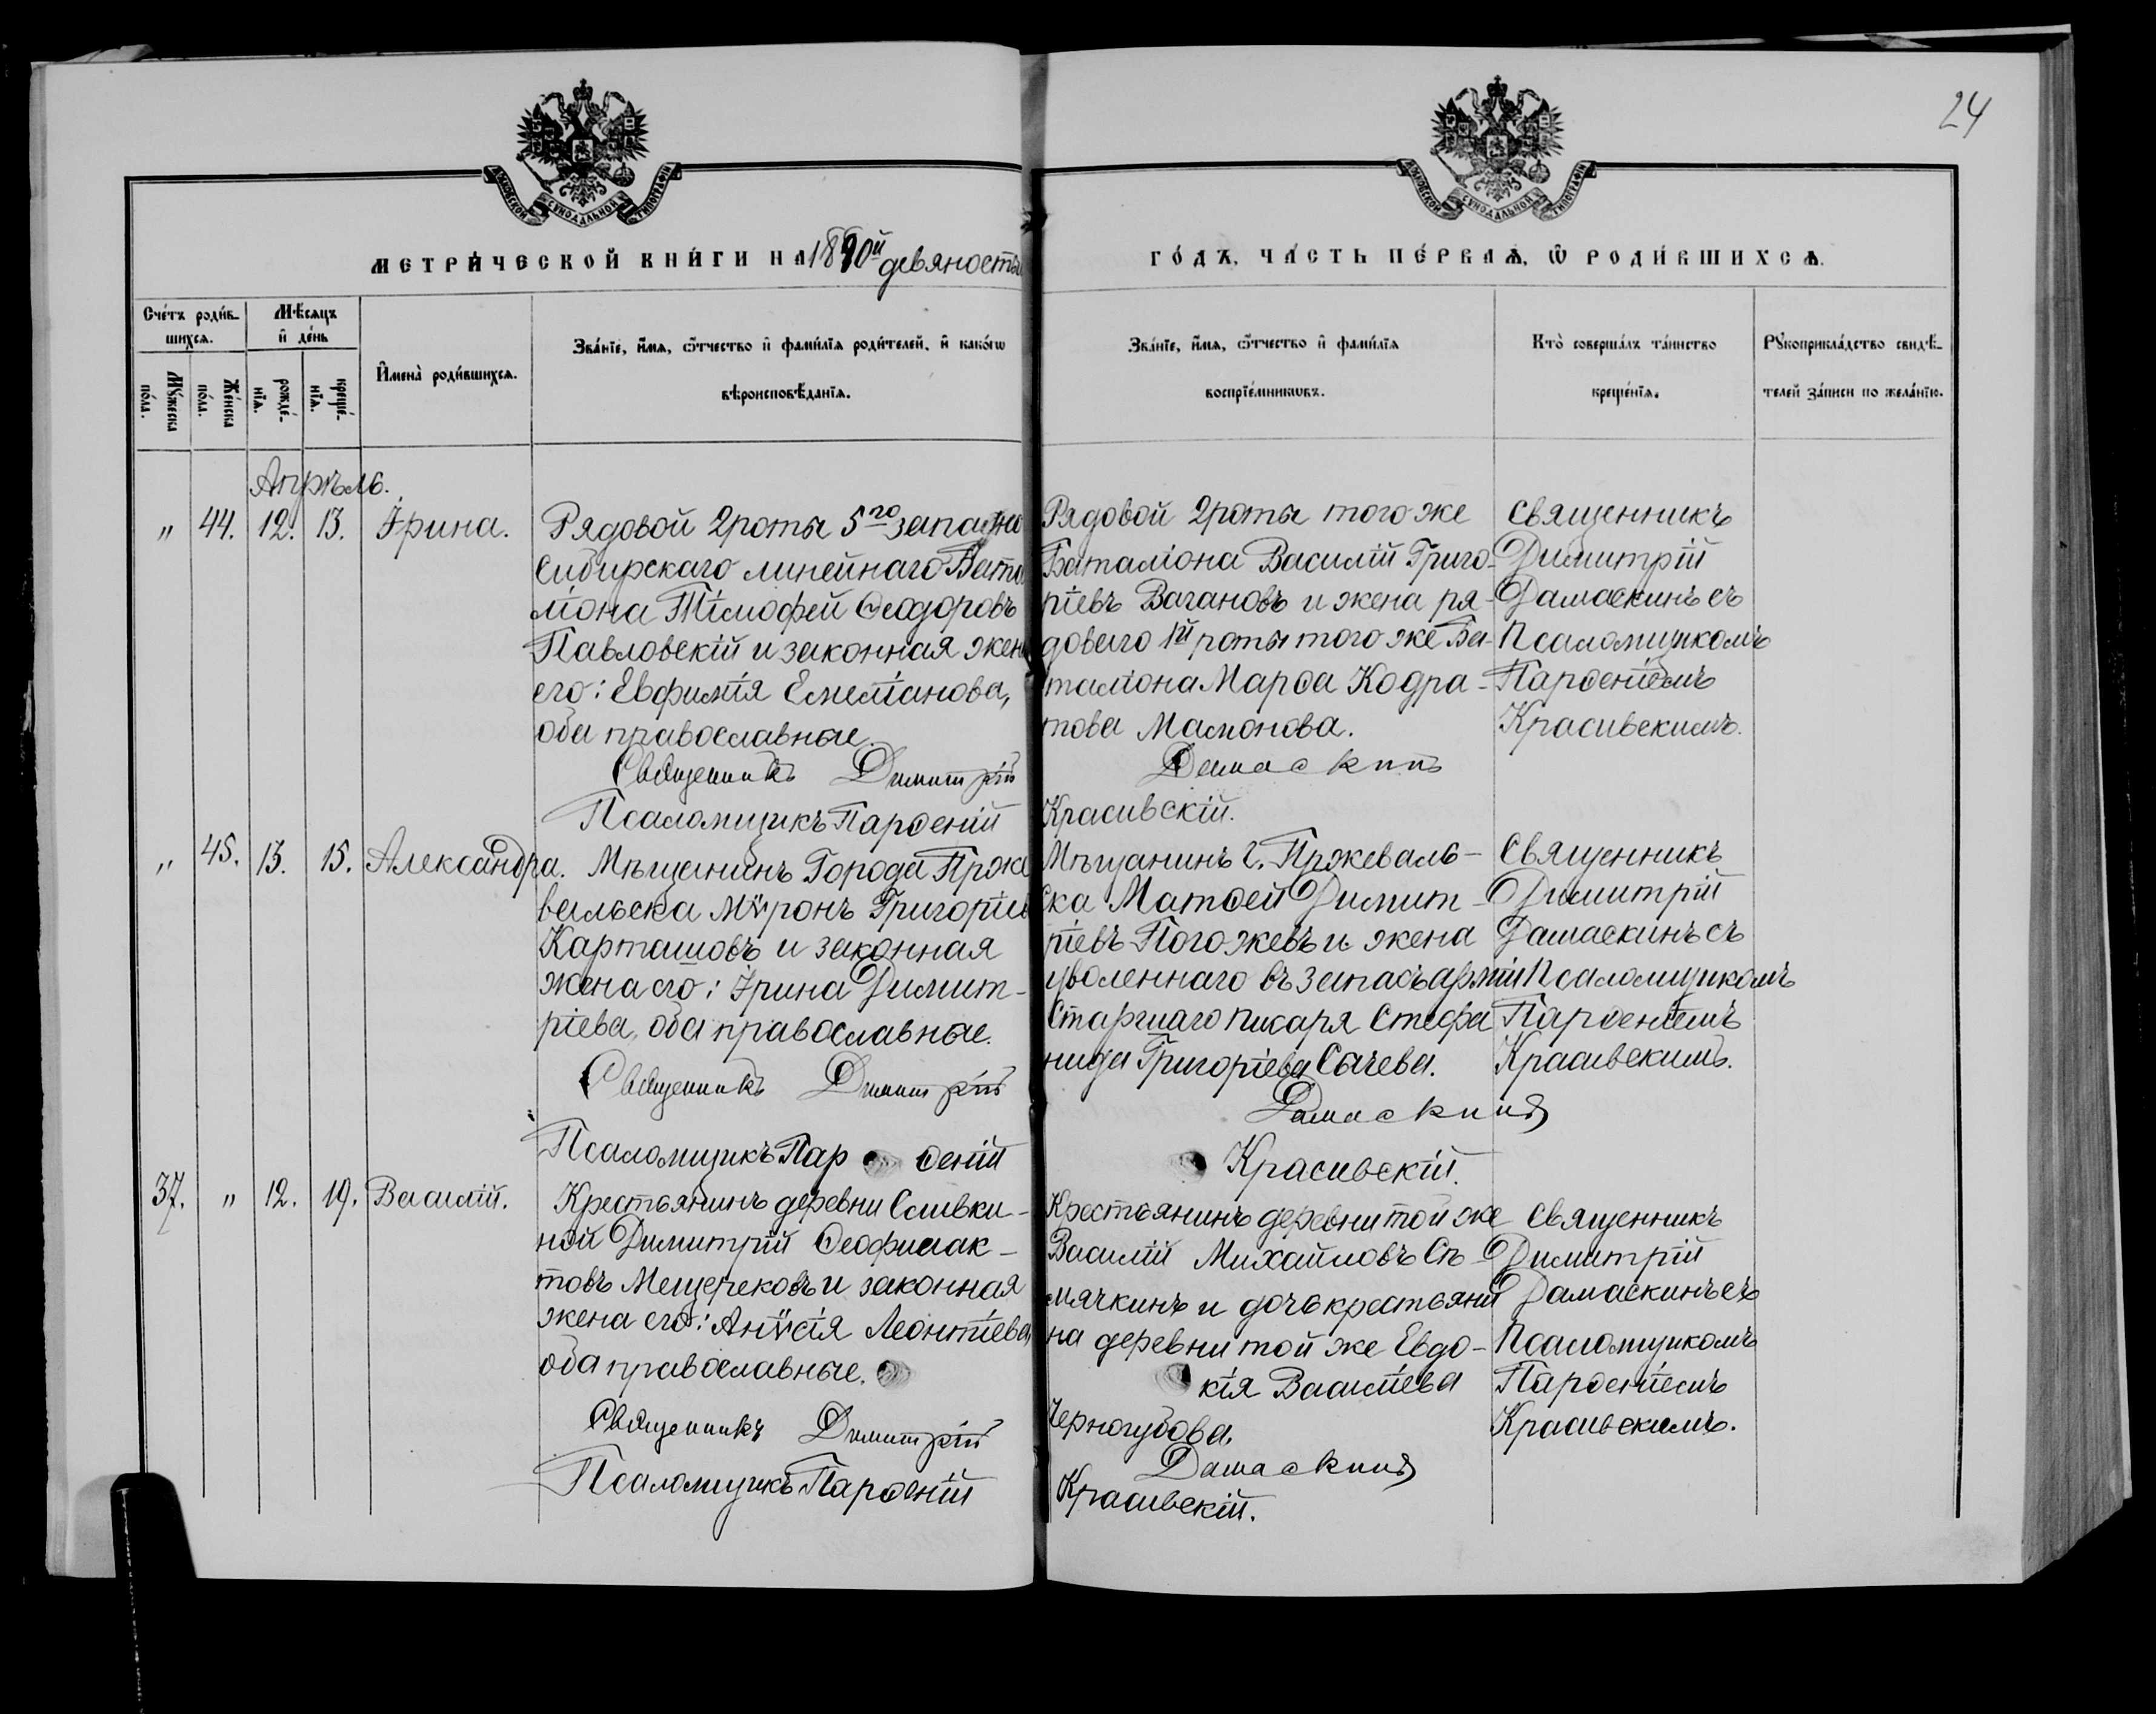 24
МОСКОВСКОЙ СѴНОДАЛЬНОЙ ТИПОГРАФІИ
МОСКОВСКОЙ СѴНОДАЛЬНОЙ ТИПОГРАФІИ
МЕТРИ́ЧЕСКОЙ КНИ́ГИ НА 1890й девяносты
ГО́ДЪ, ЧА́СТЬ ПЕ́РВАѦ, Ѡ РОДИ́ВШИХСѦ.
Сче́тъ роди́в-
шихсѧ.
Мꙋ́жеска
по́ла.
Же́нска
по́ла.
Мѣ́сѧцъ
и де́нь
рожде́-
нїѧ.
креще́-
нїѧ.
Имена̀ роди́вшихсѧ.
Зва́нїе, и́мѧ, ѻ́тчество и фами́лїѧ роди́телей, и како́гѡ
вѣроисповѣ́данїѧ.
Зва́нїе, и́мѧ, ѻ́тчество и фами́лїѧ
воспрїе́мникѡвъ.
Кто̀ соверша́лъ та́инство
креще́нїѧ.
Рꙋкоприкла́дство свидѣ́-
телей за́писи по жела́нїю.
Апрѣль.
„ 44. 12. 13. Ірина.
Рядовой 2 роты 5го западно
Сибирскаго линейнаго Бата
ліона Тімофей Ѳеодоровъ
Павловскій и законная жена
его: Евфимія Емеліанова,
оба православные.
Священникъ Димитрій
Псаломщикъ Парѳеній
Рядовой 2 роты того же
Баталіона Василій Григо-
ріевъ Вагановъ и жена ря-
доваго 1й роты того же Ба-
таліона Марѳа Кодра-
това Мамонова.
Дамаскинъ
Красивскій.
Священникъ
Димитрій
Дамаскинъ съ
Псаломщикомъ
Парѳеніемъ
Красивскимъ.
„ 45. 13. 15. Александра.
Мѣщанинъ Города Прже
вальска Мѵронъ Григоріев
Карташовъ и законная
жена его: Ірина Димит-
ріева, оба православные.
Священникъ Димитрій
Псаломщикъ Парѳеній
Мѣщанинъ г. Пржеваль-
ска Матѳей Димит-
ріевъ Погожевъ и жена
уволеннаго въ запасъ арміи
Старшаго писаря Стефа
нида Григоріева Сычева.
Дамаскинъ
Красивскій.
Священникъ
Димитрій
Дамаскинъ съ
Псаломщикомъ
Парѳеніемъ
Красивскимъ.
37. „ 12. 19. Василій.
Крестьянинъ деревни Сливки-
ной Димитрій Ѳеофилак-
товъ Мещерековъ и законная
жена его: Анѵсія Леонтіева,
оба православные.
Священникъ Димитрій
Псаломщикъ Парѳеній
Крестьянинъ деревни той же
Василій Михайловъ Съ-
мячкинъ и дочь крестьяни
на деревни той же Евдо-
кія Васильева
Черногубова.
Дамаскинъ
Красивскій.
Священникъ
Димитрій
Дамаскинъ съ
Псаломщикомъ
Парѳеніемъ
Красивскимъ.